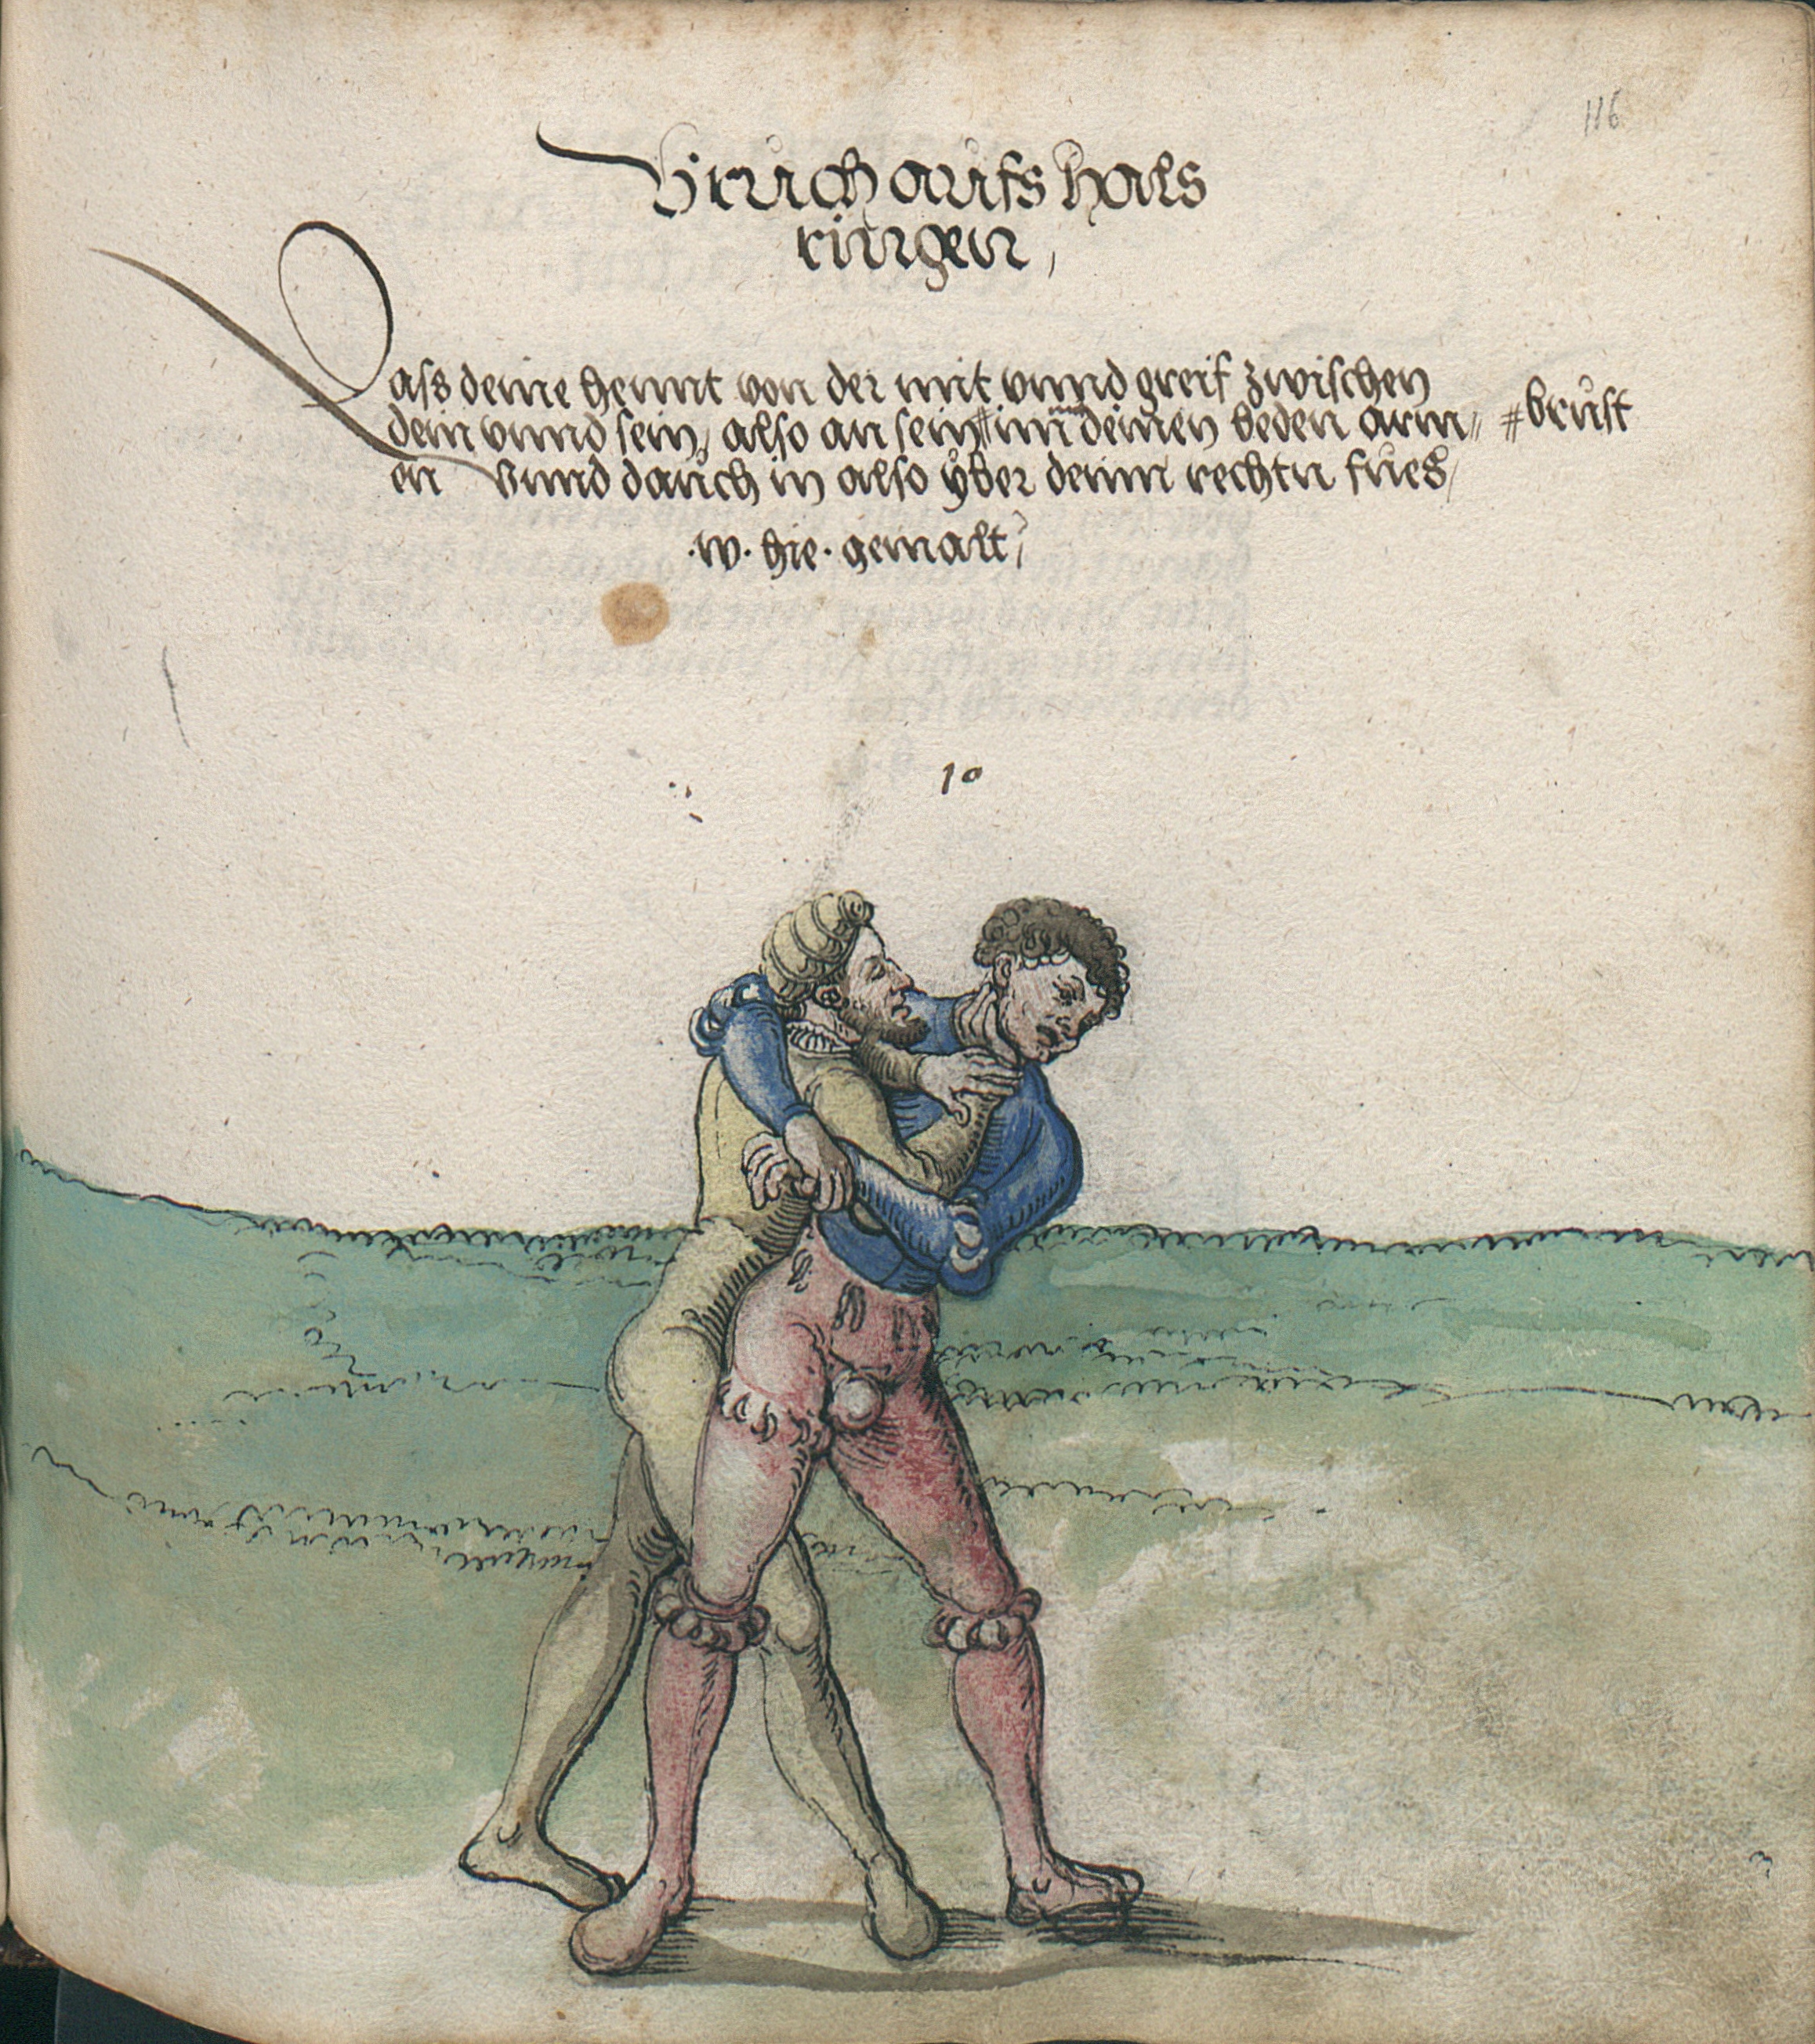 116
Bruch aufs hals
ringen,
Lass deine hennt von der mit vnnd greif zwischen
dein vnnd sein, also an sein # im deinen beden arm〃 # brust
en vnnd dauch in also yber deinn rechtn fues,
.w. hie. gemalt,
10